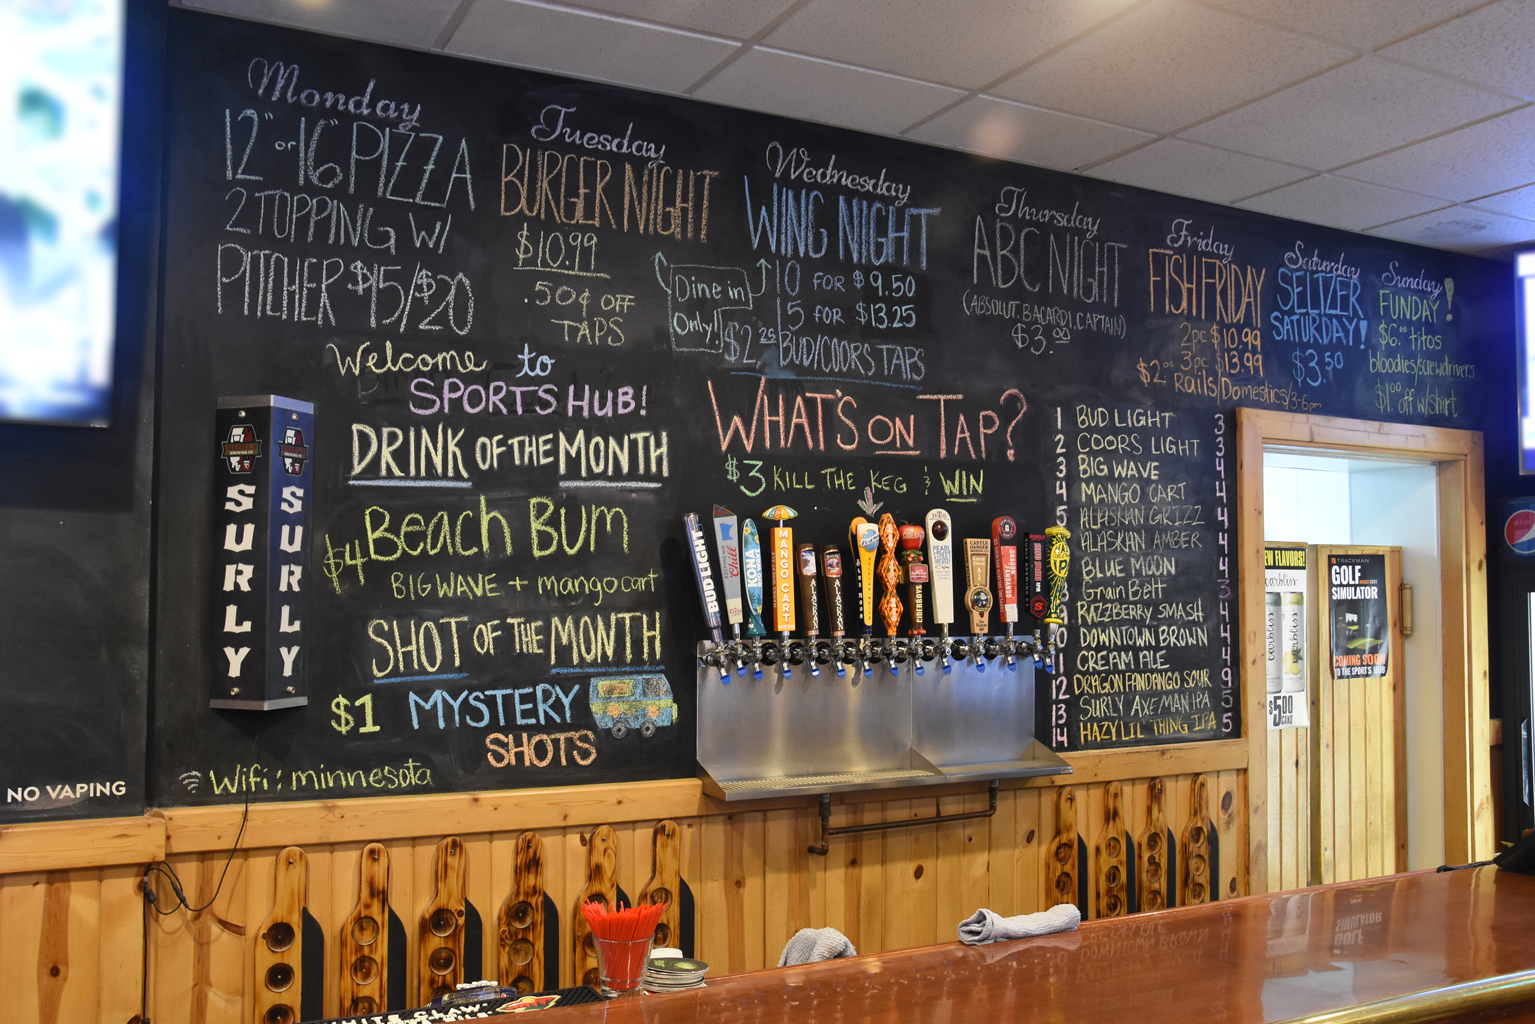 Monday
12" or 16" PIZZA
2 TOPPING W/
PITCHER $15/$20
Tuesday
BURGER NIGHT
$10.99
.50¢ OFF
TAPS
Wednesday
WING NIGHT
10 FOR $9.50
5 FOR $13.25
$2.25 BUD/COORS TABS
Dine in
Only!
Thursday
ABC NIGHT
(ABSOLUT, BACARDI, CAPTAIN)
$3.00
Friday
FISH FRIDAY
2pc $10.99
3pc $13.99
$2.00 Rails/Domestics/3-6pm
Saturday
SELTZER
SATURDAY!
$3.50
Sunday
FUNDAY!
$6.00 titos
bloodies/screwdrivers
$1.00 off w/shirt
Welcome to
SPORTS HUB!
DRINK OF THE MONTH
$4 Beach Bum
BIG WAVE + mango cart
SHOT OF THE MONTH
$1 MYSTERY
SHOTS
Wifi: minnesota
WHAT'S ON TAP?
$3 KILL THE KEG & WIN
1 BUD LIGHT 3
2 COORS LIGHT 3
3 BIG WAVE 4
4 MANGO CART 4
5 ALASKAN GRIZZ 4
ALASKAN AMBER 4
BLUE MOON 4
Grain Belt 3
RAZZBERRY SMASH 4
0 DOWNTOWN BROWN 4
11 CREAM ALE 4
12 DRAGON FANDANGO SOUR 9
13 SURLY AXE MAN IPA 5
14 HAZY LIL THING IPA 5
SURLY
SURLY
NO VAPING
BUD LIGHT
Chill
KONA
MANGO CART
ALASKAN
ALASKAN
NEW FLAVORS!
carbliss
carbliss
$5.00
CANS
TRACKMAN
GOLF
SIMULATOR
COMING SOON
TO THE SPORTS HUB
WHITE CLAW